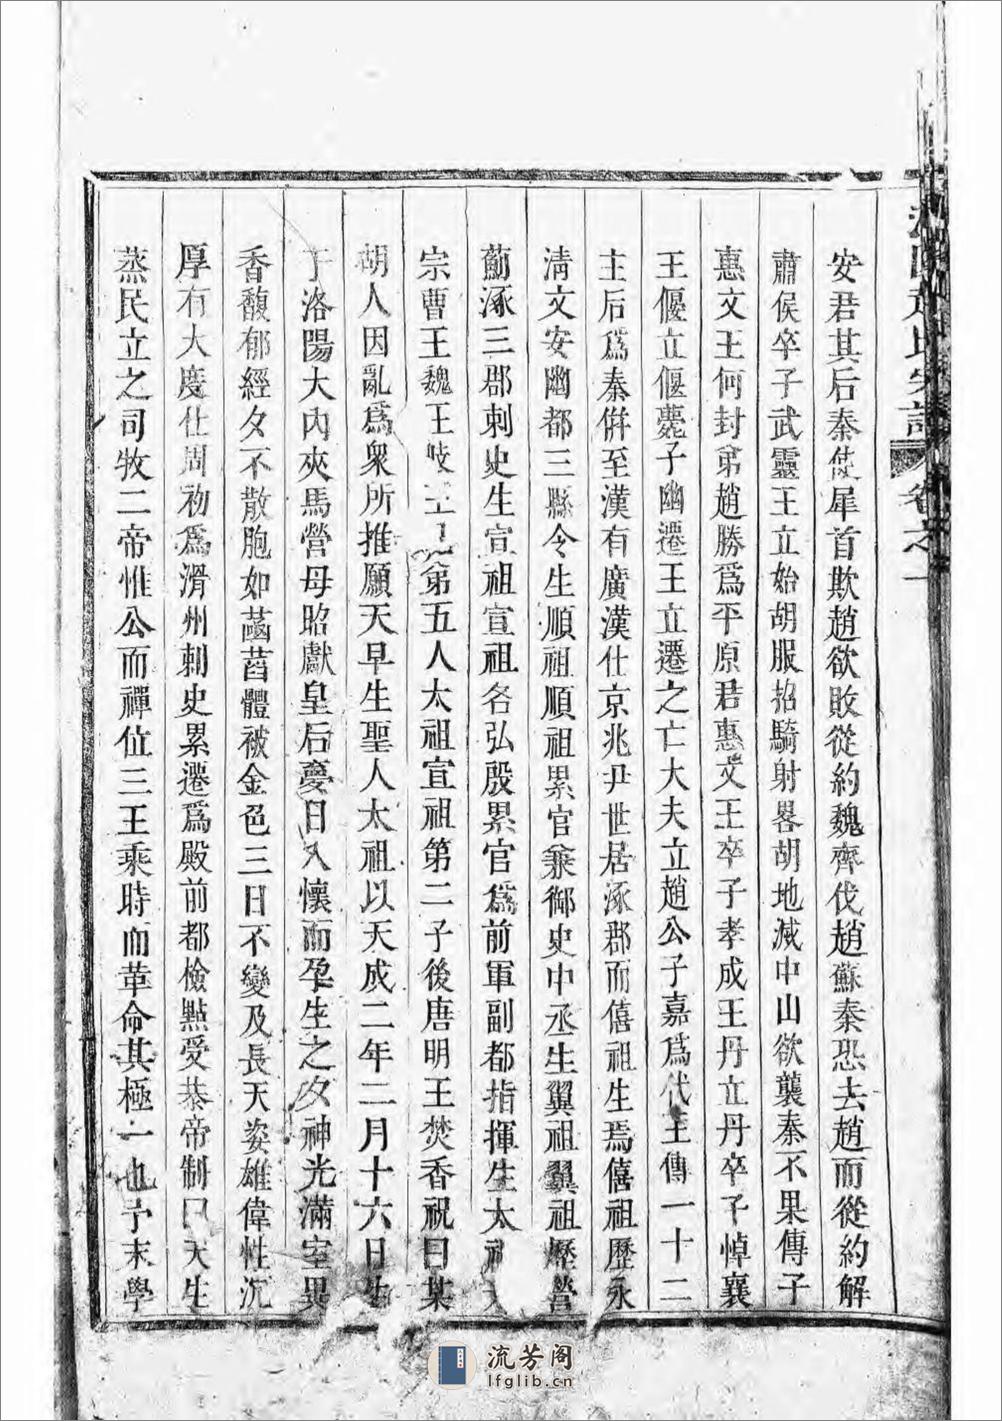 趙氏宗譜 卷之一
安君其后秦使犀首欺趙欲敗從約魏齊伐趙蘇秦恐去趙而從約解
肅侯卒子武靈王立始胡服招騎射畧胡地滅中山欲襲秦不果傳子
惠文王何封弟趙勝爲平原君惠文王卒子孝成王丹立丹卒子悼襄
王偃立偃薨子幽遷王立遷之亡大夫立趙公子嘉爲代王傳一十二
主后爲秦併至漢有廣漢仕京兆尹世居涿郡而僖祖生焉僖祖歷永
淸文安幽都三縣令生順祖順祖累官兼御史中丞生翼祖翼祖歷營
薊涿三郡刺史生宣祖宣祖名弘殷累官爲前軍副都指揮生太祖
宗曹王魏王岐王第五人太祖宣祖第二子後唐明王焚香祝曰某
胡人因亂爲衆所推願天早生聖人太祖以天成二年二月十六日生
于洛陽大內夾馬營母昭獻皇后夢日入懷而孕生之夕神光滿室異
香馥郁經夕不散胞如菡萏體被金色三日不變及長天姿雄偉性沉
厚有大度仕周初爲滑州刺史累遷爲殿前都檢點受恭帝制曰天生
蒸民立之司牧二帝惟公而禪位三王乘時而革命其極一也予末學
流芳阁
lfglib.cn